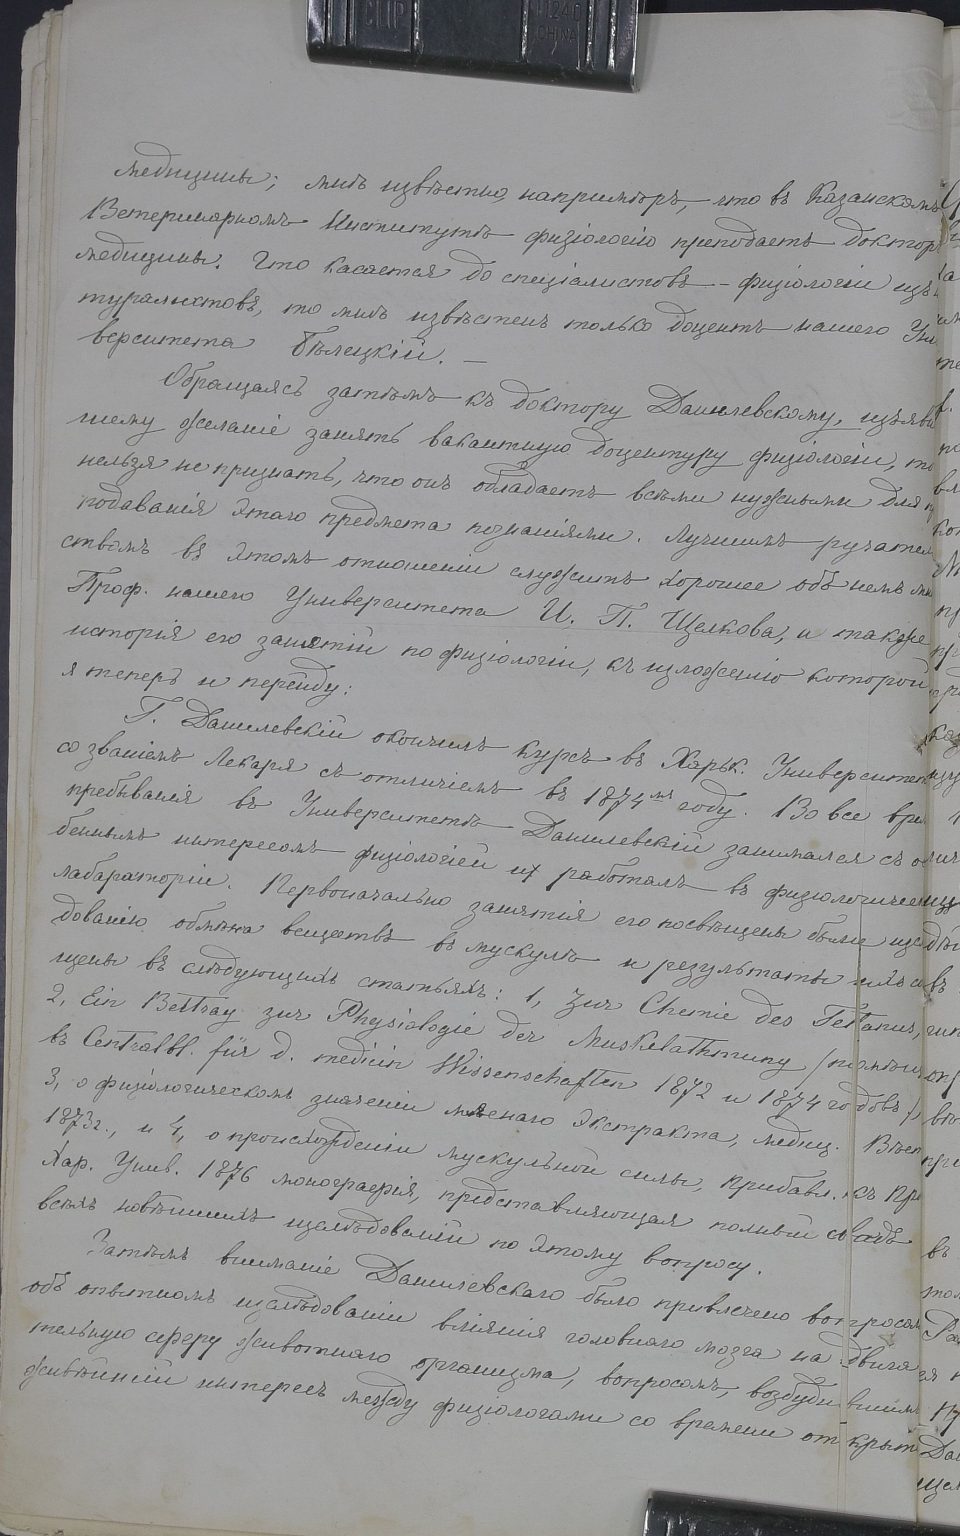 медицины; мнѣ извѣстно, напримѣръ, что въ Казанскомъ
Ветеринарномъ Институтѣ физіологію преподаетъ докторъ
медицины. Что касается до спеціалистовъ – физіологіи изъ
туралистовъ, то мнѣ извѣстенъ только доцентъ нашего Уни
верситета Бѣлецкій. —
Обращаясь затѣмъ къ доктору Данилевскому, изъяви
шему желаніе занять вакантную доцентуру физіологіи, то
нельзя не признать, что онъ обладаетъ всѣми нужными для п
подаванія этаго предмета познаніями. Лучшимъ ручатель
ствомъ въ этомъ отношеніи служитъ хорошее объ немъ мн
Проф. нашего Университета И. П. Щелкова, и также
исторія его занятій по физіологіи, къ изложенію которой
я теперь и перейду:
Г. Данилевскій окончилъ курсъ въ Харьк. Университет
со званіемъ Лекаря съ отличіемъ въ 1874мъ году. Во все вре
пребыванія въ Университетѣ Данилевскій занимался съ о
беннымъ интересомъ физіологіей и работалъ въ физіологиче
лабараторіи. Первоначально занятія его посвящены были изслѣ
дованію обмѣна веществъ въ мускулѣ и результаты ихъ
щены въ слѣдующихъ статьяхъ: 1, Zur Chemie des Tetanus,
2, Ein Beitrag zur Physiologie der Muskelathmung (помѣщ
въ Centralbl. für d. medicin Wissenschaften 1872 и 1874 годовъ),
3, о физіологическомъ значеніи мяснаго экстракта, медиц. Вѣст
1873г., и 4, о происхожденіи мускульной силы, Прибавл. къ Пр
Хар. Унив. 1876 монографія, представляющая полный сводъ
всѣхъ новѣйшихъ изслѣдованій по этому вопросу.
Затѣмъ вниманіе Данилевскаго было привлечено вопросом
объ опытномъ изслѣдованіи вліянія головнаго мозга на двига
тельную сферу животнаго организма, вопросомъ, возбудившимъ
живѣйшій интересъ между физіологами со времени открыт